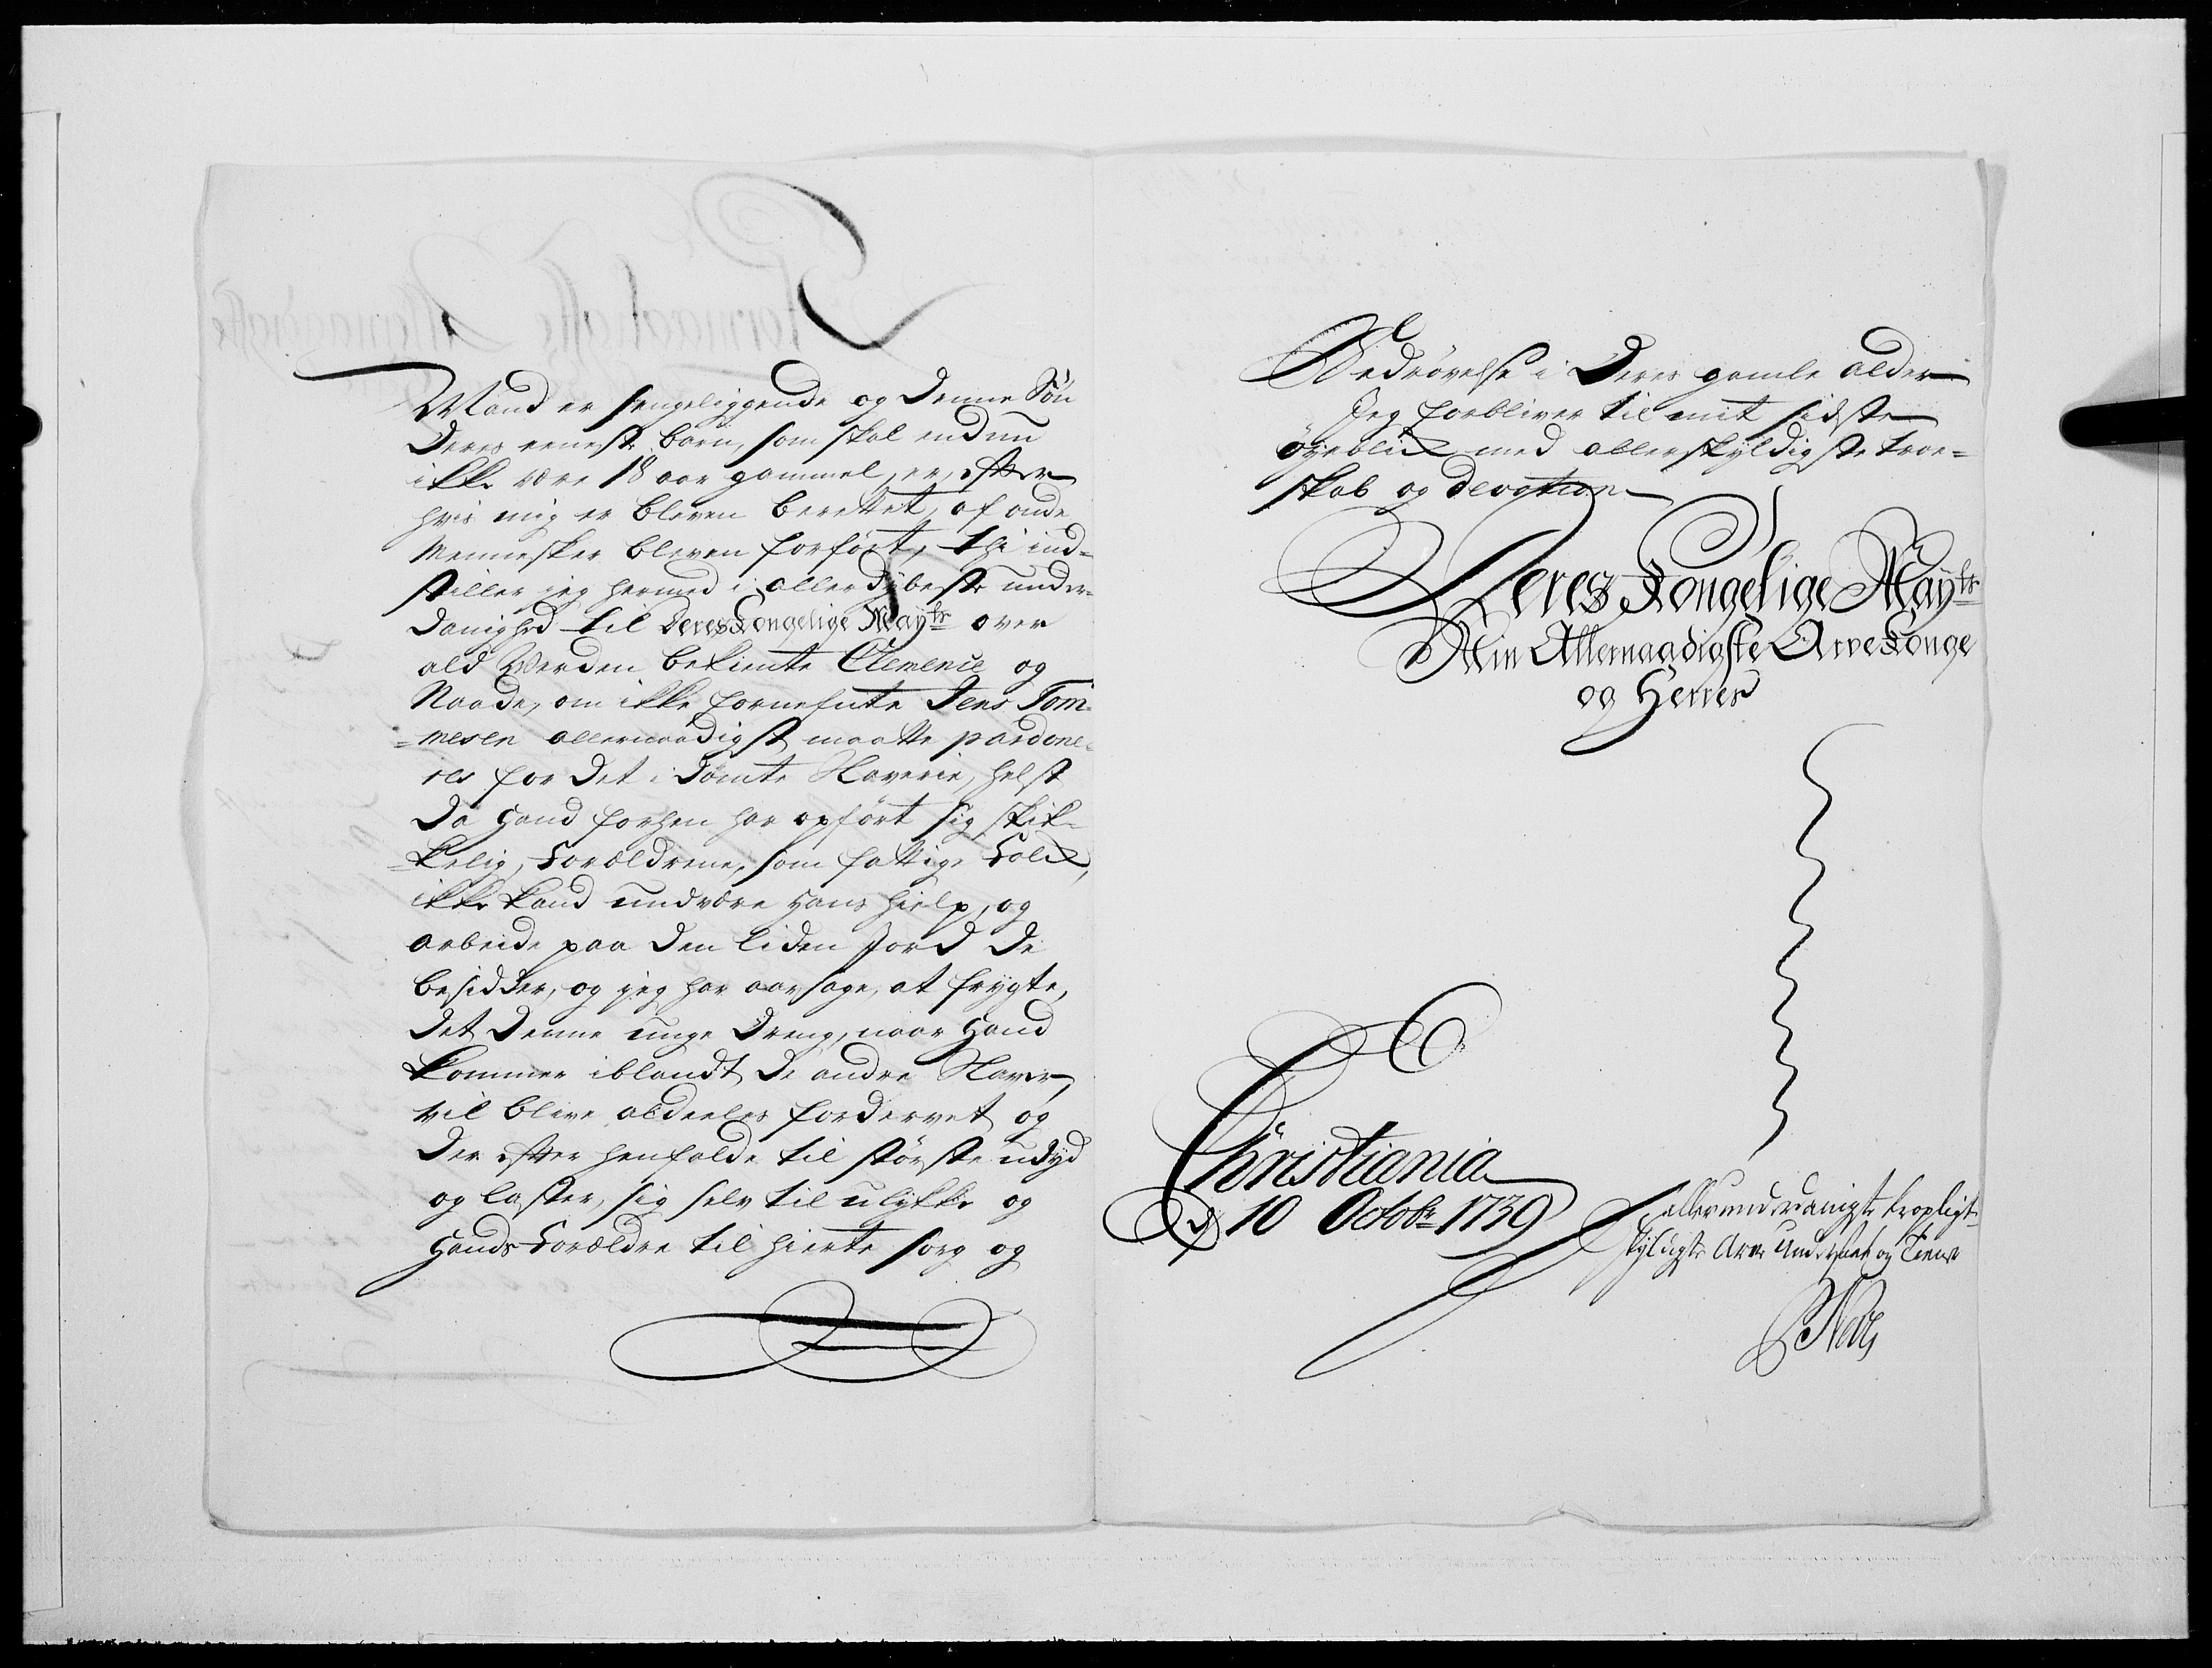 Mand er sengeliggende og denne Søn
deres eeneste barn, som skal endnu
ikke være 18 aar gammel, er, efter
hvis mig er bleven berettet, af onde
Mennesker bleven forført, thi ind-
stiller jeg hermed i allerdybeste under-
danighed til Deres Kongelige Mayts over
ald Verden bekiente Clemence og
Naade, om ikke fornefnte Jens Tom-
=mesen allernaadigst maatte pardone-
res for det i dømte Slaverie, helst
da Hand forhen har opført sig skik-
=kelig, Forældrene, som fattige Folck,
ikke kand undvære Hans hielp, og
arbeide paa den liden Jord de
besidder, og jeg har aarsage, at frygte,
det denne unge Dreng, naar Hand
kommer iblandt de andre Slaver,
vil blive aldeeles fordervet og
der efter henfalde til største udyd
og laster, sig selv til ulykke og
Hands Forældre til hierte sorg og
Bedrøvelse i Deres gamle alder
Jeg forbliver til mit sidste
øyeblick med allerskyldigste troe-
skab og devotion
Deres Kongelige Mayts
Min Allernaadigste Arve Konge
og Herres
Christiania
d 10 Octobr 1739
allerunderdanigste tropligt
skyldigste Arve Undersaat og Tiener